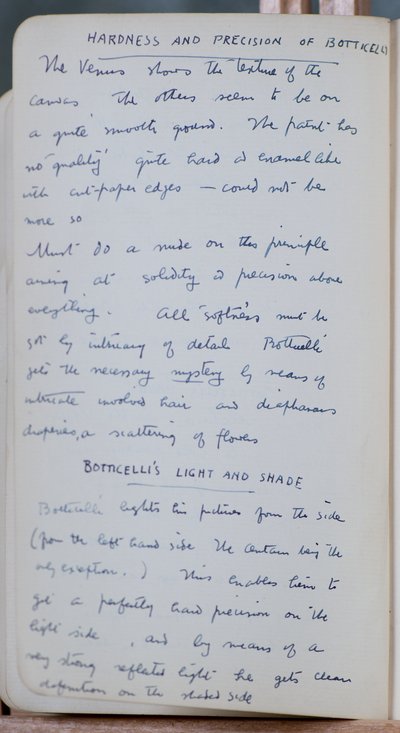 HARDNESS AND PRECISION OF BOTTICELLI
The Venus shows the texture of the
canvas The others seem to be on
a quite smooth ground. The paint has
no 'quality' quite hard & enamel like
with cut-paper edges — could not be
more so
Must do a nude on this principle
aiming at solidity & precision above
everything. All 'softness must be
got by intricacy of detail Botticelli
gets the necessary mystery by means of
intricate involved hair and diaphanous
draperies, a scattering of flowers
BOTTICELLI'S LIGHT AND SHADE
Botticelli lights his pictures from the side
(from the left hand side The centaur being the
only exception.) This enables him to
get a perfectly hard precision on the
light side, and by means of a
very strong reflected light he gets clean
definition on the shaded side